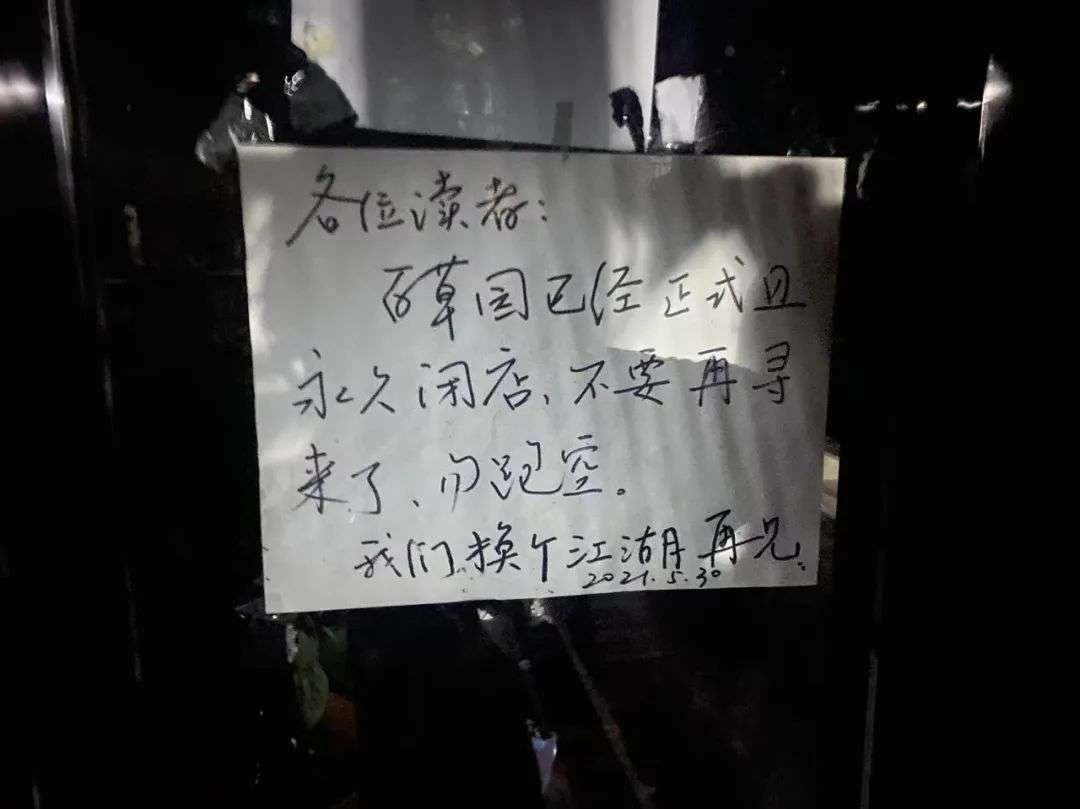 各位读者:
百草园已经正式且
永久闭店、不要再寻
来了、勿跑空。
我们换个江湖再见.
2021.5.30